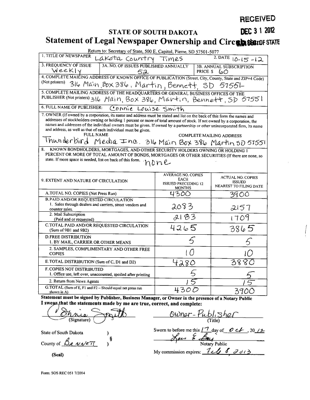 RECEIVED
DEC 31 2012
STATE OF SOUTH DAKOTA
Statement of Legal Newspaper Ownership and Circulation
OF STATE
Return to: Secretary of State, 500 E. Capitol, Pierre, SD 57501-5077
1. TITLE OF NEWSPAPER Lakota Country Times
2. DATE 10-15-12
3. FREQUENCY OF ISSUE Weekly
3A. NO. OF ISSUES PUBLISHED ANNUALLY 52
3B. ANNUAL SUBSCRIPTION PRICE $ 60
4. COMPLETE MAILING ADDRESS OF KNOWN OFFICE OF PUBLICATION (Street, City, County, State and ZIP+4 Code) (Not printers)
316 Main Box 386, Martin, Bennett, SD 57551
5. COMPLETE MAILING ADDRESS OF THE HEADQUARTERS OR GENERAL BUSINESS OFFICES OF THE
PUBLISHER (Not printers) 316 Main, Box 386, Martin, Bennett, SD 57551
6. FULL NAME OF PUBLISHER: Connie Louise Smith
7. OWNER (If owned by a corporation, its name and address must be stated and list on the back of this form the names and
addresses of stockholders owning or holding 1 percent or more of total amount of stock. If not owned by a corporation, the
names and addresses of the individual owners must be given. If owned by a partnership or other unincorporated firm, its name
and address, as well as that of each individual must be given.
FULL NAME
COMPLETE MAILING ADDRESS
Thunderbird Media Inc. 316 Main Box 386 Martin SD 57551
8. KNOWN BONDHOLDERS, MORTGAGEES, AND OTHER SECURITY HOLDERS OWNING OR HOLDING 1
PERCENT OR MORE OF TOTAL AMOUNT OF BONDS, MORTGAGES OR OTHER SECURITIES (If there are none, so
state. If more space is needed, list on back of this form.
none
9. EXTENT AND NATURE OF CIRCULATION
AVERAGE NO. COPIES EACH ISSUED PRECEDING 12 MONTHS
ACTUAL NO. COPIES ISSUED NEAREST TO FILING DATE
A. TOTAL NO. COPIES (Net Press Run) 4300 3900
B. PAID AND/OR REQUESTED CIRCULATION
1. Sales through dealers and carriers, street vendors and counter sales. 2083 2157
2. Mail Subscription (Paid and or requested) 2183 1709
C. TOTAL PAID AND/OR REQUESTED CIRCULATION (Sum of 9B1 and 9B2) 4265 3865
D. FREE DISTRIBUTION
1. BY MAIL, CARRIER OR OTHER MEANS 5 5
2. SAMPLES, COMPLIMENTARY AND OTHER FREE COPIES 10 10
E. TOTAL DISTRIBUTION (Sum of C, D1 and D2) 4280 3880
F. COPIES NOT DISTRIBUTED
1. Office use, left over, unaccounted, spoiled after printing 5 5
2. Return from News Agents 15 15
G. TOTAL (Sum of E, F1 and F2 – Should equal net press run shown in A) 4300 3900
Statement must be signed by Publisher, Business Manager, or Owner in the presence of a Notary Public
I swear that the statements made by me are true, correct, and complete:
Connie Smith
(Signature)
Owner-Publisher
(Title)
State of South Dakota )
§
County of Bennett )
(Seal)
Sworn to before me this 17 day of Oct, 2012
Notary Public
My commission expires: 2013
Form: SOS REC 051 7/2004